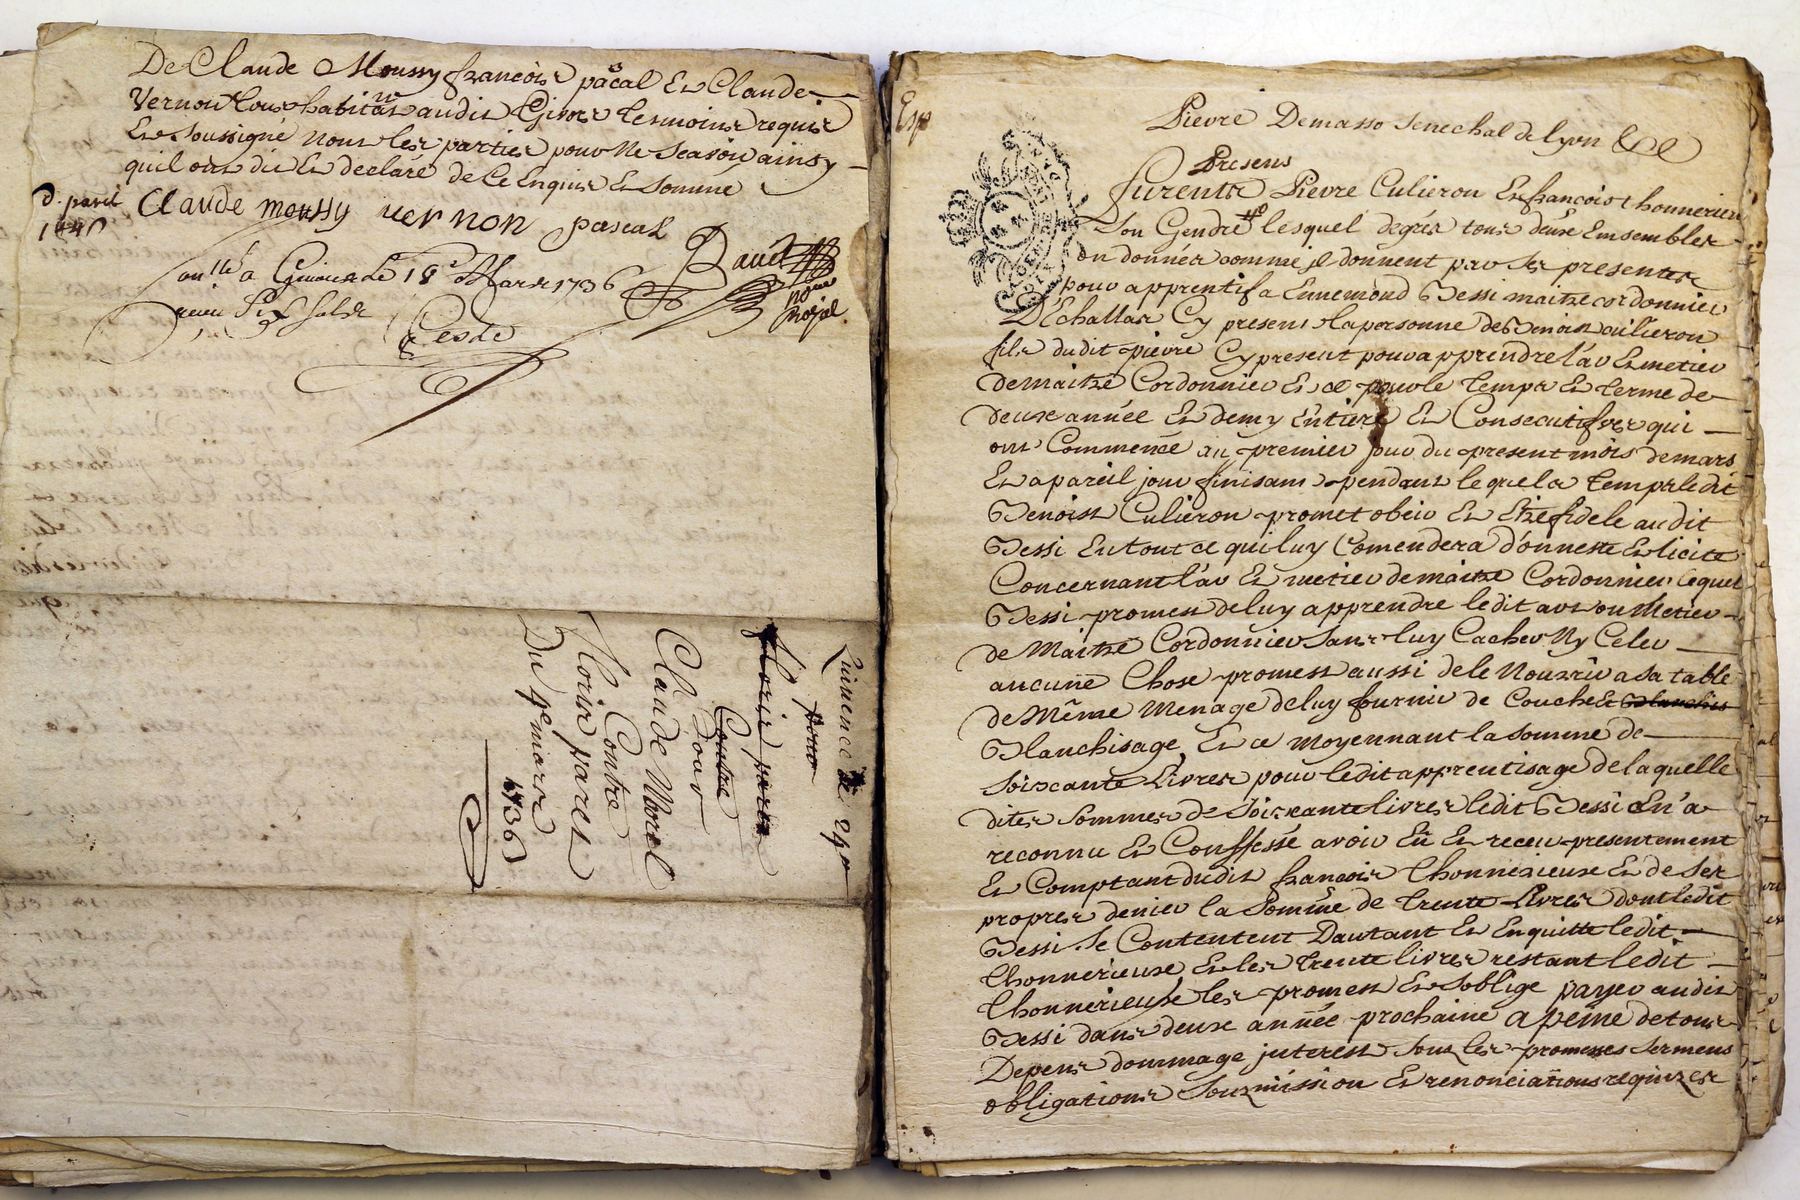 De Claude Moussy françois pascal Et Claude
Vernon tous habitans audit Givors tesmoins requis
Et Soussigné Nous les parties pour Ne Scavoir ainsy
quil ont dit Et declaré de Ce Enquis Et Sommé
Claude moussy vernon pascal
Contlé a Givors Le 18e Mars 1736
receu
Noue
Royal
Quittence de
pour
floris paret
Contre
Pour
Claude Morel
Contre
Floris paret
Du 4e mars
1736
Exp
Pierre Demasso Senechal de lyon &&
Presens
furents Pierre Culieron Et françois thonnerieu
Son Gendre lesquel degrés tous deux Ensembles
on donnés comme jl donnent par Ses presentes
pour apprentif a Ennemond Bessi maitre cordonnier
D'Echallas Cy present la personne de Benoist culieron
fils dudit pierre Cy present pour apprendre l'ar Et metier
de maitre Cordonnier Et ce pour le temps Et terme de
deux année Et demy Entiere Et Consecutifves qui
ont Commencé au premier jour du present mois de mars
Et a pareil jour finisant pendant le quela temps ledit
Benoist Culieron promet obeir Et Etre fidele audit
Bessi En tout ce qui luy Comendera d'onneste Et licite
Concernant l'ar Et metier de maitre Cordonnier lequel
Bessi promest de luy apprendre ledit art ou Metier
de Maitre Cordonnier Sans luy Cacher Ny Celer
aucune Chose promest aussi de le Nourrir a sa table
de Même Menage de luy fournir de Couche Et Blanchis
Blanchisage Et ce moyennant la somme de
Soixcante Livres pour ledit apprentisage de laquelle
dites Sommes de Soixcante livres ledit Bessi En a
reconnu Et Conffessé avoir Eü Et receu presentement
Et Comptant dudit françois thonnerieux Et de Ses
propres denier la Somme de trente Livres dont ledit
Bessi Se Contentent Dautant Et Enquitte ledit
thonnerieux Et les trente livres restant ledit
thonnerieux les promest Et Soblige payer audit
Bessi dans deux année prochaine a peine de tous
Depens dommage jnterest Sous les promesses Sermens
obligations Souzmission Et renonciations requizes